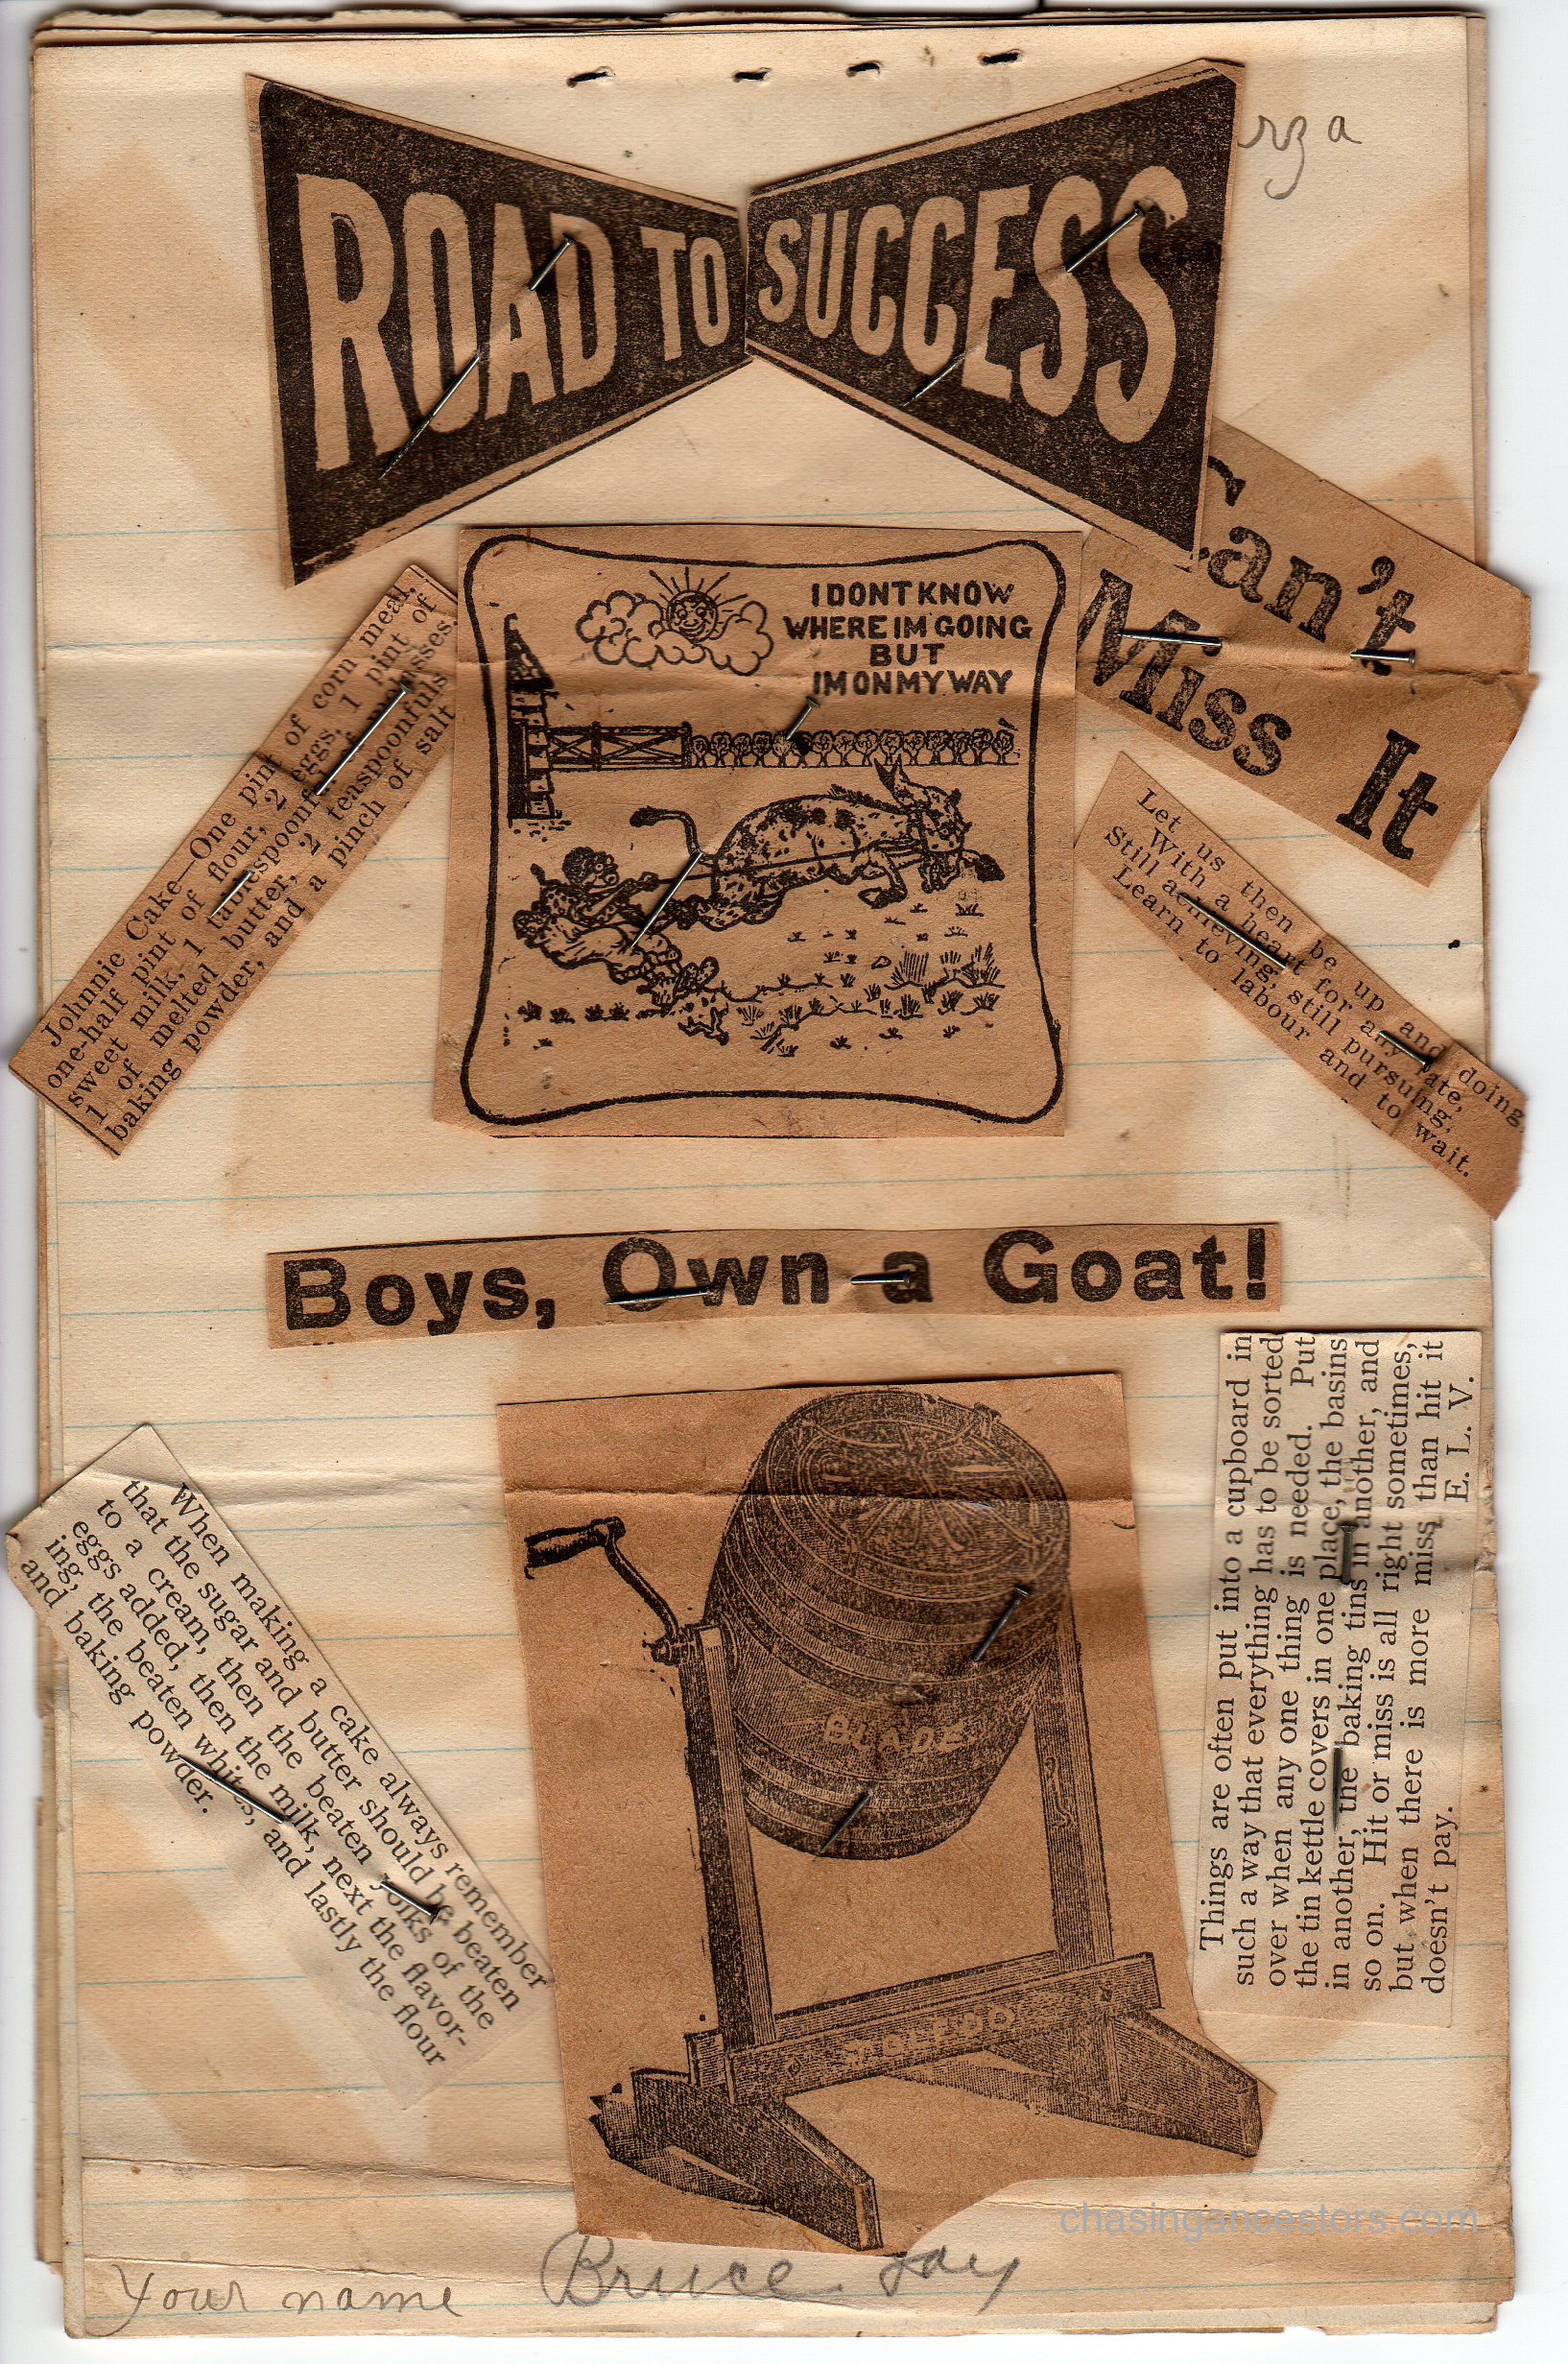 rza
ROAD TO SUCCESS
Can't
Miss It
I DONT KNOW
WHERE IM GOING
BUT
IM ON MY WAY
Johnnie Cake—One pint of corn meal,
one-half pint of flour, 2 eggs, 1 pint of
sweet milk, 1 tablespoonful molasses,
1 of melted butter, 2 teaspoonfuls
baking powder, and a pinch of salt
Let us then be up and doing
With a heart for any fate,
Still achieving, still pursuing,
Learn to labour and to wait.
Boys, Own a Goat!
When making a cake always remember
that the sugar and butter should be beaten
to a cream, then the beaten yolks of the
eggs added, then the milk, next the flavor-
ing, the beaten whites, and lastly the flour
and baking powder.
BLADE
TOLEDO
Things are often put into a cupboard in
such a way that everything has to be sorted
over when any one thing is needed. Put
the tin kettle covers in one place, the basins
in another, the baking tins in another, and
so on. Hit or miss is all right sometimes,
but when there is more miss than hit it
doesn't pay. E. L. V.
chasingancestors.com
Your name Bruce Jay